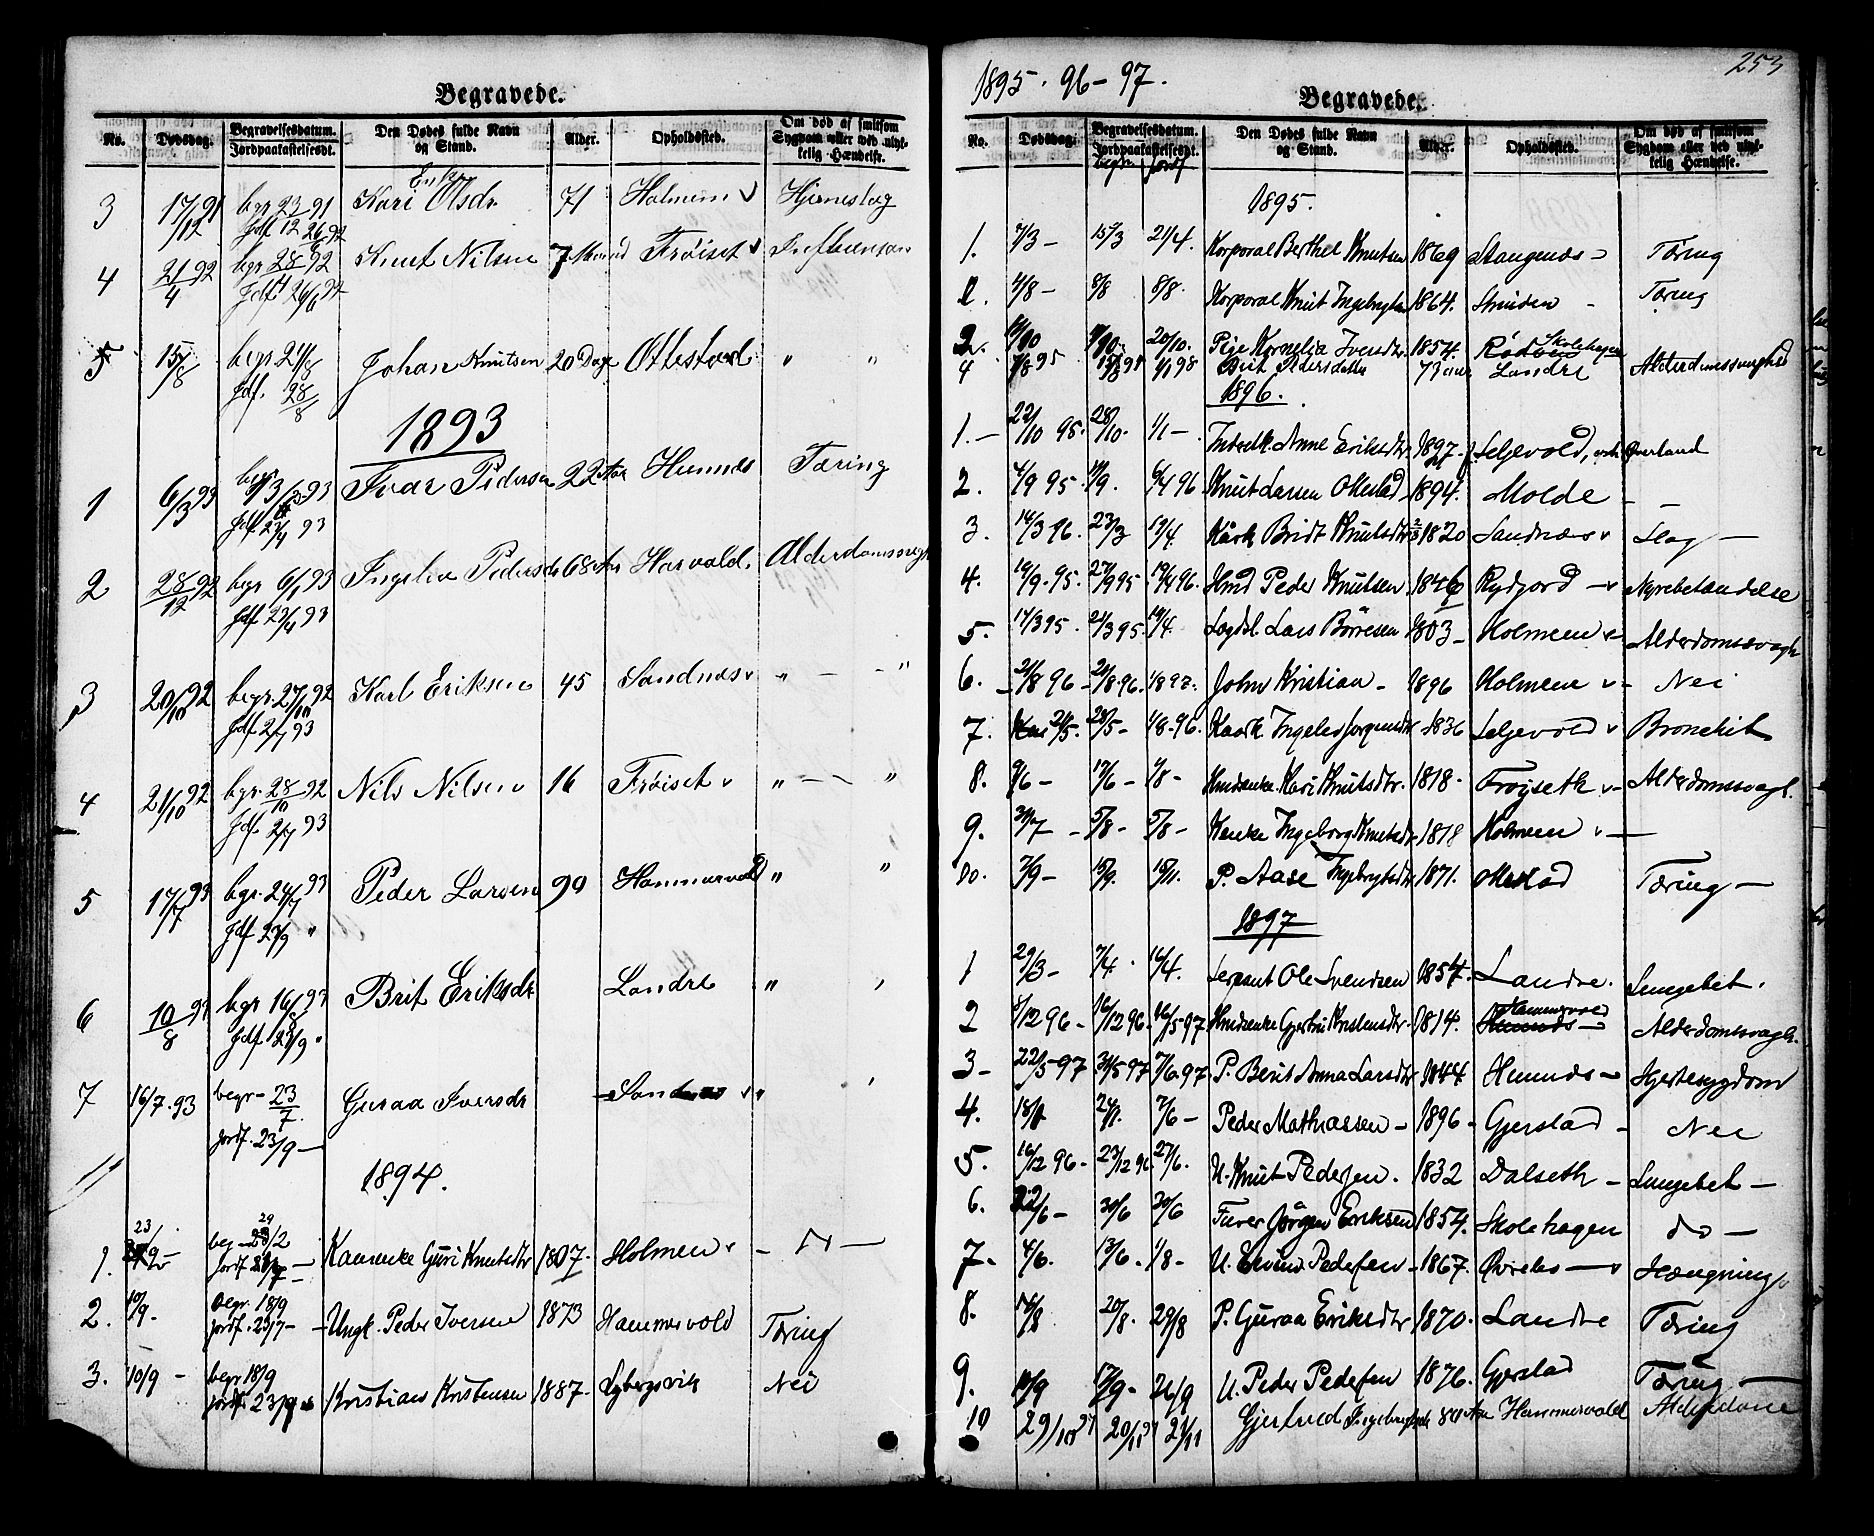 Begravede.
No. Dødsdag. Begravelsesdatum. Jordpaakastelsesdt. Den Dødes fulde Navn og Stand. Alder. Opholdssted. Om død af smitsom Sygdom eller ved ulykkelig Hændelse.
3 17/12 91 begr 23/12 91 Enke Kari Olsdr 71 Holmem v Hjerneslag
jdf 26 92
4 21/4 92 begr 28/4 92 Knut Nilsen 7 Maaned Frøiset v
jdf 26/6 92
5 15/8 begr. 21/8 Johan Knutsen 20 Dage Ottestad " "
jdf. 28/8
1893
1 6/3 93 begr 3 93 Ivar Pedersen 22 Aar Hunnes Tæring
jdf 23/4 93
2 28/12 92 begr 6/1 93 Ingelev Pedersdr 68 Aar Harvold. Alderdomssvagh
jdf 23/4 93
3 20/10 92 begr. 27/10 92 Karl Eriksen 45 Sandnes v " — - "
jdf 2/7 93
4 21/10 92 begr. 28/10 92 Nils Nilsen 16 Frøiset v " — "
jdf. 2/7 93
5 17/7 93 begr. 24/7 93 Peder Larsen 90 Hammervold " "
jdf 23/9 "
6 10/8 93 begr 16/8 93 Brit Eriksdr Landre " "
jdf 23/9 "
7 16/7 . 93 begr - 23/7. Guraa Iversdr Sandnes v "
jordf. 23/9 —
1894.
1. 23/2 — beg - 29/2 Kaarenke Guri Knutsdtr 1807 - Holmen v - N —
jordf
2. 10/9 - Begr. 18/9 Ungk. Peder Iversen 1873 Hammervold Tæring
jordf. 23/7 -
3. 10/9 - begr 18/9 Kristiaes Kristensen 1887 - Lybergsvik Nei
jordf 23/9
253
1895 . 96 - 97.
Begravede.
No. Dødsdag. Begravelsesdatum. Jordpaakastelsesdt. Den Dødes fulde Navn og Stand. Alder. Opholdssted. Om død af smitsom Sygdom eller ved ulykkelig Hændelse.
begr jordf
1895.
1. 7/3 - 15/3 21/4. Korporal Berthel Knutsen 1869 Stangenes - Tæring
2. 4/8 - 8/8 8/8. Korporal Knut Ingebrigtsen 1864. - Tæring
Skolehagen
3. 20/10. Pige Kornelia Iversdtr. 1854. Rødven
4 7/8 95 13/8 95 1/1 98 Brit Pedersdatter 73 aar Landre Alderdomssvaghed
1896.
1. - 22/10 95. 28/10. 1/1 - Indredk. Anne Eriksdtr 1827. Seljevold, Øverland
2. 4/9 95. 11/9. 6/4 96 Knut Larsen Ottestad 1894. Molde - —
3. 14/3 96. 23/3 19/4. Kaark Bridt Knutsdtr 1820 Sandnæs v Slag —
4. 19/9. 95. 27/9 95 19/4 96. Hmd Peder Knutsen 1846 Rydjord - v Nyrebetændelse
5. 17/3 95. 21/3 95. 19/4. Logdsl. Lars Börresen 1803 - Holmem v Alderdomssvagh
6. 21/8 96 - 29/8. 96. 1897. John Kristian - 1896 Holmem v - Nei
7. 21/5. 28/5 - 1/8 - 96. Kaark Ingeleo Jørgensdtr 1836 Seljevold v Bronchit
8. 9/6 - 17/6 - 1/8 - Hmdsenke Kari Knutsdtr. 1818 - Frøyseth v - Alderdomssvagh.
9. 30/7 - 5/8 - 5/8 - Kaenke Ingeborg Knutsdtr 1818 Holmem v —
10. 7/9 - 15/9. 15/11. P. Aase Ingebrigtsdtr 1871. Ottestad Tæring —
1897
1 29/3 - 7/4 . 16/4. Sersant Ole Svendsen 1854. Landre. Lungebet.
Hammervold
2 8/12 96 - 16/12 96. 16/5 - 97 Hmdsenke Gjertrui Kristensdtr. 1814. Hunnes - Alderdomssvagh.
3 - 22/5 - 97 31/5 97 7/6. 97 P. Berit Anna Larsdtr 1844. Hunnes - Hjertesygdom
4. 18/1 24/1. 7/6 - Peder Mathiassen - 1896 - Gjerstad - Nei
5. 16/12 96 - 23/12 96. 27/6. U. Knut Pedersen. 1832 Dalseth - Lungebet —
6. 22/6 - 30/6 30/6 Furer Jørgen Eriksen 1854. Skolehagen do —
7 - 4/6. 13/6. 1/8 - U. Eivind Pedersen - 1867. Øvrebø — v Hængning v
8. 14/8 20/8. 29/8 P. Guraa Eriksdtr 1870. Landre Tæring
9. 10/9 17/9 - 26/9 U. Peder Pedersen 1876. Gjerstad Tæring —
10 29/10 97 20/11 97 21/11 Gjertrud Ingebrigtsdr 80 Aar Hammervold Alderdom